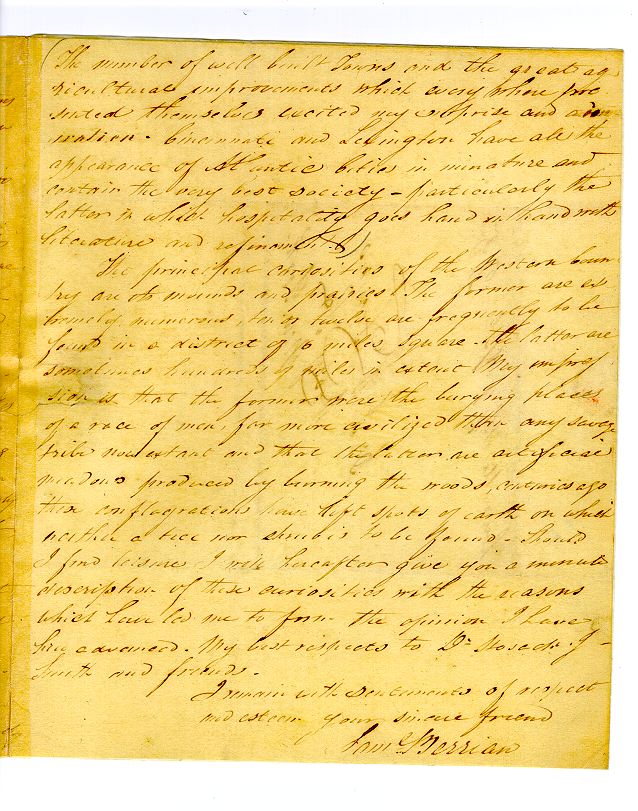 (The number of well built Towns and the great ag
ricultural improvements which every where pre
sented themselves excited my surprise and admi
ration. Cincinnati and Lexington have all the
appearance of Atlantic Cities in minature and
contain the very best society - particularly the
latter in which hospitality goes hand in hand with
literature and refinement.)
The principal curiosities of the Western Coun
try are its mounds and prairies. The former are ex
tremely numerous ten or twelve are frequently to be
found in a district of 6 miles square. The latter are
sometimes hundreds of miles in extent. My impres
sion is that the former were the burying places
of a race of men, far more civilized than any savage
tribe now extant and that the latter are artificial
meadows produced by burning the woods, centuries ago
these conflagrations have left spots of earth on which
neither a tree nor shrub is to be found - Should
I find leisure I will hereafter give you a minute
description of these curiosities with the reasons
which have led me to form the opinion I have
here advanced. My best respects to Dr
Smith and friends.
I remain with sentiments of respect
and esteem your sincere friend
Saml Berrian